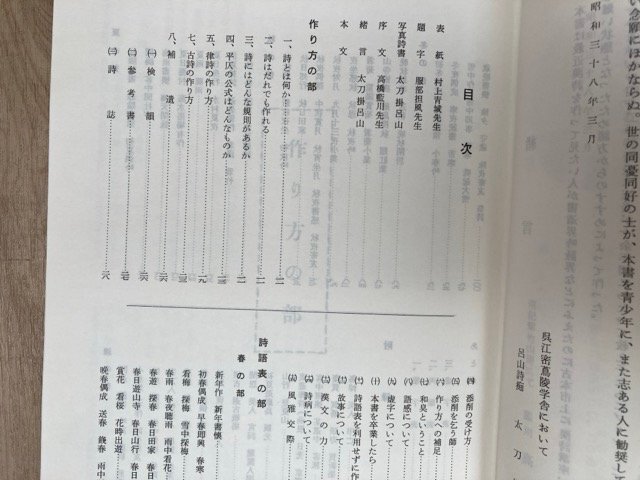 い念願にほかならぬ。世の同憂同好の士が、本書を青少年に、また志ある人に勧奨して
昭和三十八年三月
呉江密蔦陵学舎において
呂山詩塾　太刀
目次
表紙　村上青城先生
題字　服部担風先生
写真詩書　太刀掛呂山
序文　高橋藍川先生
緒言　太刀掛呂山
本文
作り方の部
一、詩とは何か
二、詩はだれでも作れる
三、詩にはどんな規則があるか
四、平仄の公式はどんなものか
五、律詩の作り方
七、古詩の作り方
八、補遺
㈠検韻
㈡参考書
㈢詩誌
㈣添削の受け方
㈤添削を乞う師
㈥作り方への補足
㈦和臭ということ
㈧語感について
㈨虚字について
㈩本書を卒業したら
詩語表を利用せずに作
故事について
漢文の力
詩病について
風雅交際
詩語表の部
春の部
新年作　新年書懐
初春偶成　早春即興　春寒
看梅　探梅　雪中探梅
春雨　春夜聴雨　雨中看花
春遊　探春　春日田家　春日
春日遊山寺　春日山行　春日
賞花　看桜　花時出遊
晩春偶成　送春　餞春　雨中